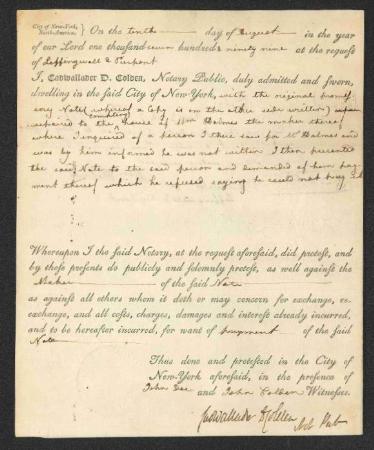 City of New-York, North-America. } On the tenth day of August in the year
of our Lord one thousand seven hundred ninety nine at the request
of Leffingwell & Pierpont
I, Cadwallader D. Colden, Notary Public, duly admitted and sworn,
dwelling in the said City of New-York, with the original promis
sory Note (whereof a Copy is on the other side written)
to the House of Wm Holmes the maker thereof
where I inquired of a person I there saw for Mr Holmes and
was by him informed he was not within I then presented
the said Note to the said person and demanded of him pay
ment thereof which he refused saying he could not pay it
Whereupon I the said Notary, at the request aforesaid, did protest, and
by these presents do publicly and solemnly protest, as well against the
Maker of the said Note
as against all others whom it doth or may concern for exchange, re-
exchange, and all costs, charges, damages and interest already incurred,
and to be hereafter incurred, for want of payment of the said
Note
Thus done and protested in the City of
New-York aforesaid, in the presence of
John and John Colden Witnesses.
Cadwallader D Colden Not Pub